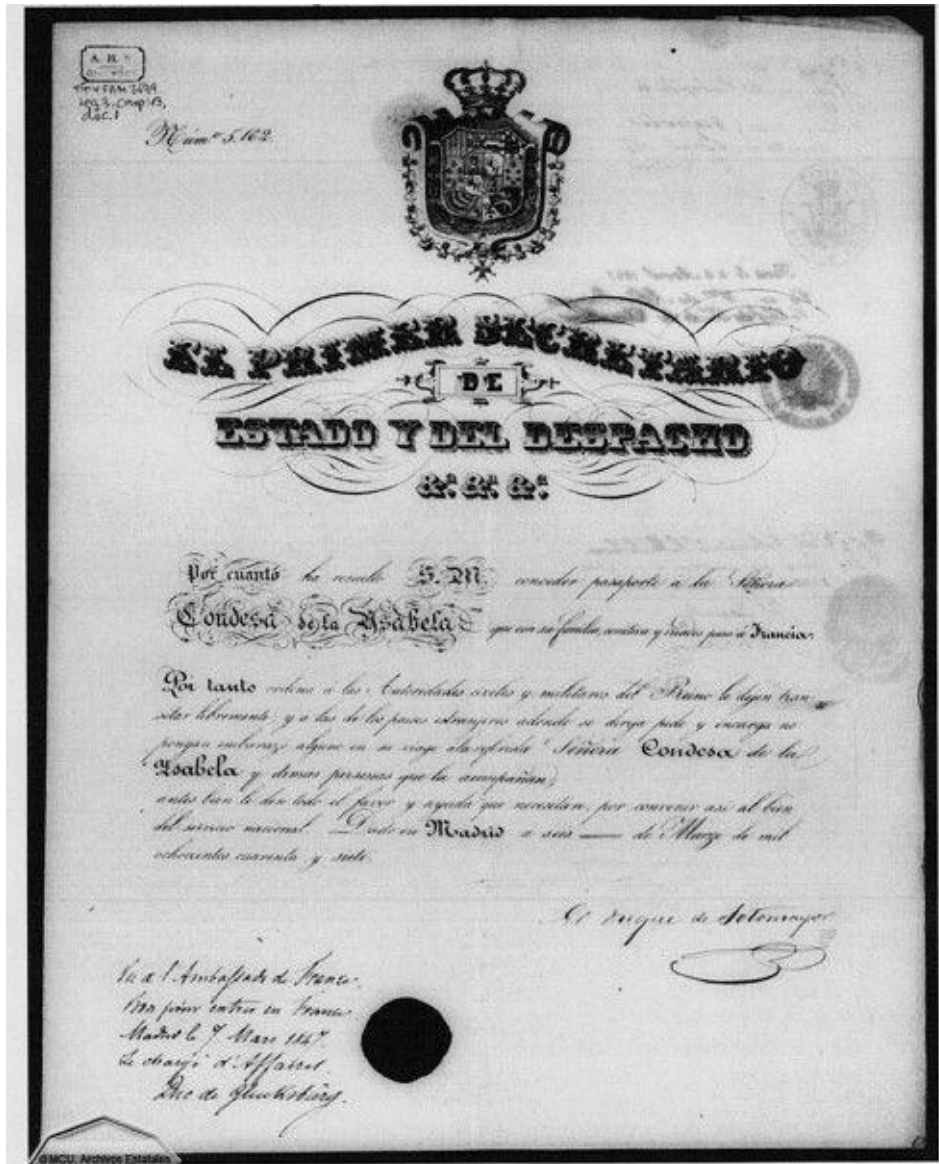 A. H. N.
TITY FAM 3679
leg 3. carp 13,
doc. 1
Núm.º 5.162.
EL PRIMER SECRETARIO
DE
ESTADO Y DEL DESPACHO
&.ª &.ª &.ª
Por cuanto ha resuelto S. M. conceder pasaporte á la Señora
Condesa de la Ysabela que con su familia, comitiva y criados pasa á Francia.
Por tanto ordena á las Autoridades civiles y militares del Reino le dejen tran-
sitar libremente, y á las de los paises estrangeros adonde se dirija pide y encarga no
pongan embarazo alguno en su viage á la referida Señora Condesa de la
Ysabela y demas personas que la acompañan,
antes bien le den todo el favor y ayuda que necesitáre, por convenir asi al bien
del servicio nacional. Dado en Madrid a seis de Marzo de mil
ochocientos cuarenta y siete.
El Duque de Sotomayor
Vu à l'Ambassade de France.
Bon pour entrer en France
Madrid le 7 Mars 1847.
Le chargé d'Affaires.
Duc de Glucksbierg.
© MCU. Archivos Estatales